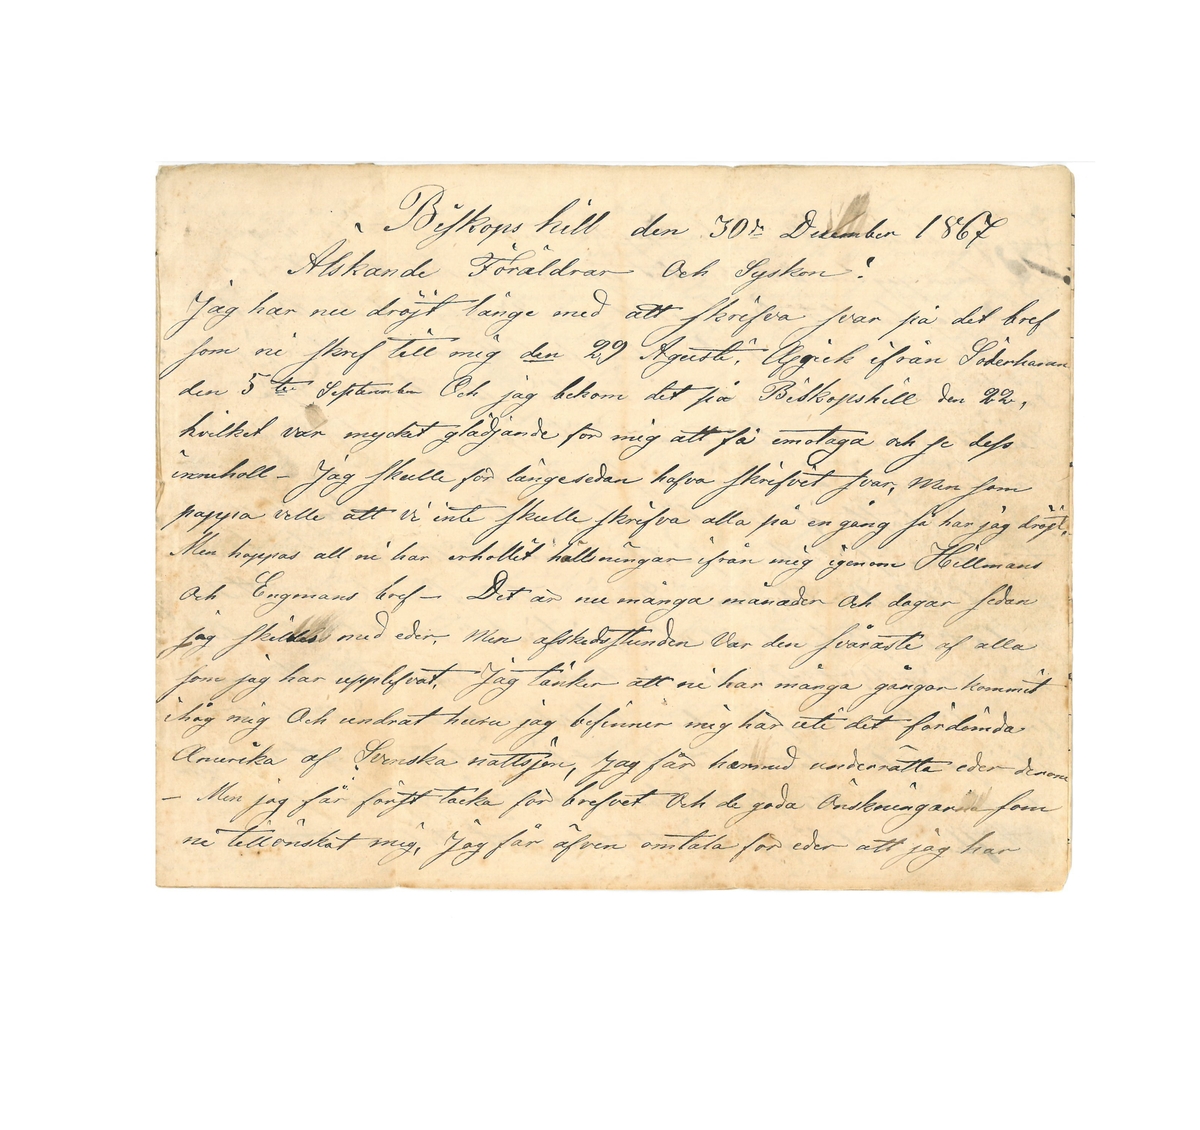 Biskopshill den 30de December 1867
Älskande Föräldrar och Syskon!
Jag har nu dröjt länge med att skrifva svar på det bref
som ni skref till mig den 29 Agusti, Afgick ifrån Söderhamn
den 5te September Och jag bekom det på Biskopshill den 22,
hvilket var mycket glädjande för mig att få emotaga och se dess
inneholl – Jag skulle för längesedan hafva skrifvit svar, Men som
pappa ville att vi inte skulle skrifva alla på en gång så har jag dröjt,
Men hoppas att ni har erhollit hällsningar ifrån mig igenom Hillmans
och Engmans bref – Det är nu många månader Och dagar sedan
jag skildes med eder Men afskedsstunden Var den svåraste af alla
som jag har upplefvat, Jag tänker att ni har många gångar kommit
ihåg mig Och undrat huru jag befinner mig här uti det fördömda
Amerika af Svenska nattsjön, Jag får härmed underrätta eder derom
– Men jag får först tacka för brefvet Och de goda Önskningar som
ni tillönskat mig, Jag får äfven omtala för eder att jag har